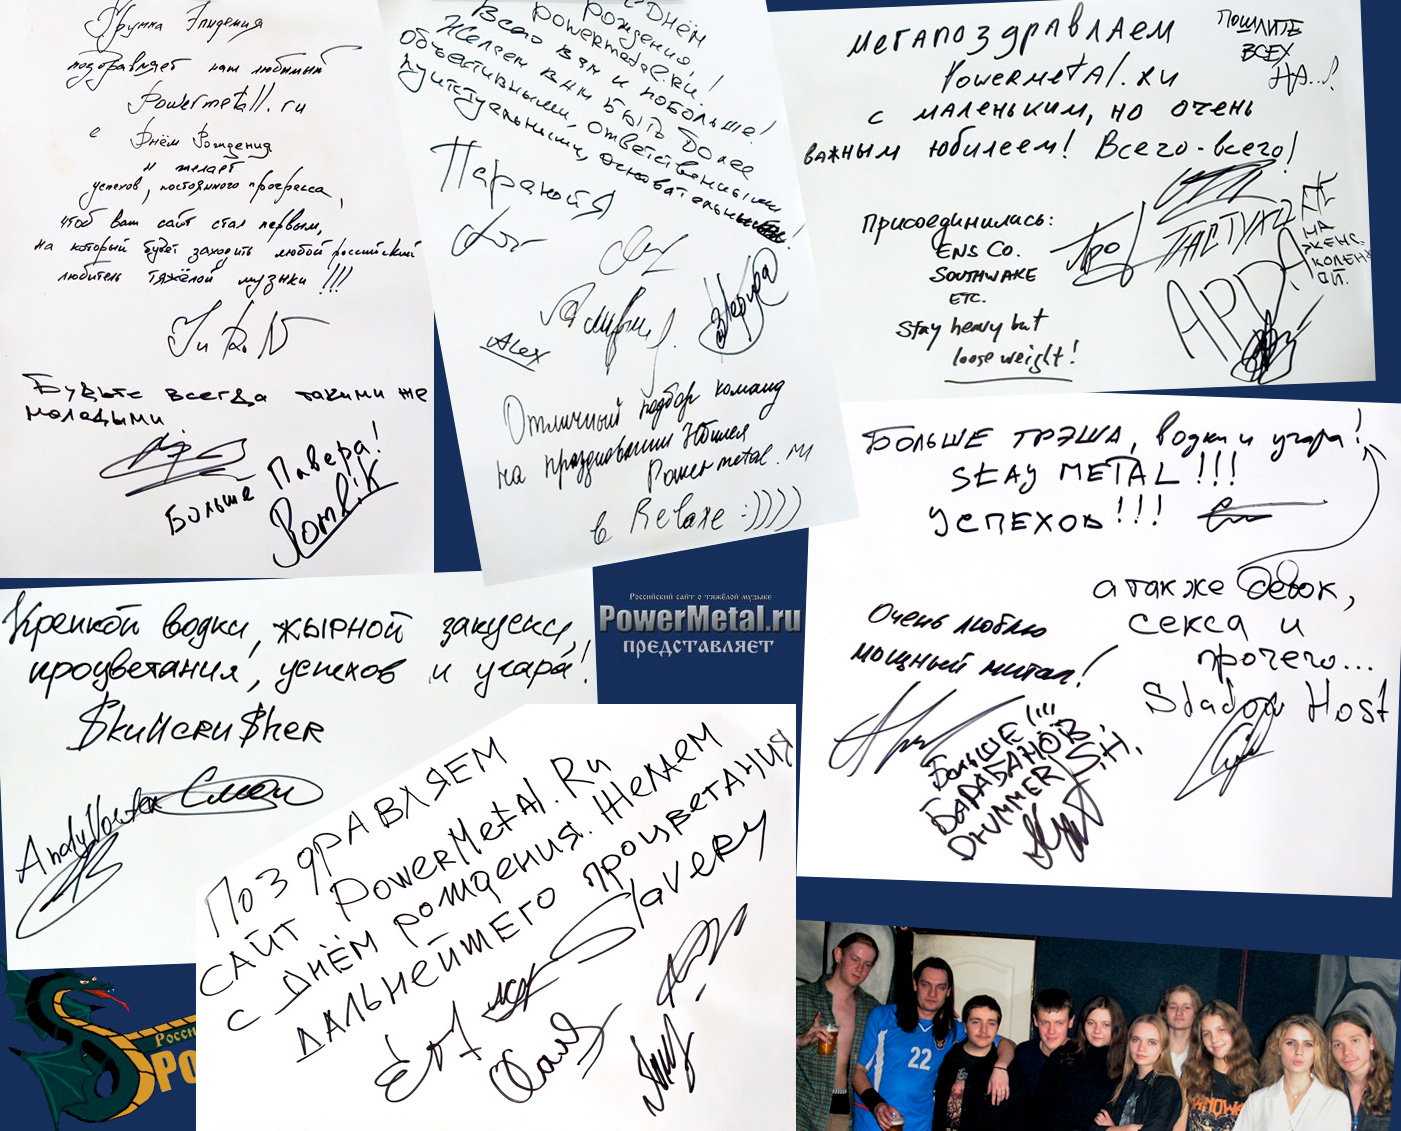 Группа Эпидемия
поздравляет наш любимый
Powermetall.ru
с
Днём Рождения
и желает
успехов, постоянного прогресса,
чтоб ваш сайт стал первым,
на который будет заходить любой российский
любитель тяжёлой музыки !!!
Будьте всегда такими же
молодыми.
Больше Павера!
Romi.K
С Днём
Рождения
powermetal.ru!
Всего вам и побольше!
Желаем вам быть более
объективными, ответственными
пунктуальными, основательными!
Паранойя
Alex
Отличный подбор команд
на праздновании Юбилея
Powermetal.ru
в Relaxe :))))
мегапоздравляем
Powermetal.ru
с маленьким, но очень
важным юбилеем! Всего-всего!
Пошлите
всех
на...!
Присоединились:
ENS Co.
Southwake
etc.
Stay heavy but
loose weight!
Про
Пастухи
АРДА
на
женс.
колен
ой.
Больше трэша, водки и угара!
Stay METAL !!!
Успехов!!!
а также девок,
секса и
прочего...
Stadow Host
Очень люблю
мощный митал!
Больше!!!!
Барабанов.
Drummer S.H.
Крепкой водки, жырной закуски,
процветания, успехов и угара!
$kullcru$her
Andy Vortex
Российский сайт о тяжёлой музыке
PowerMetal.ru
представляет
Поздравляем
сайт PowerMetal.Ru
с днём рождения. Желаем
дальнейшего процветания
Slavery
Росси
Po
22